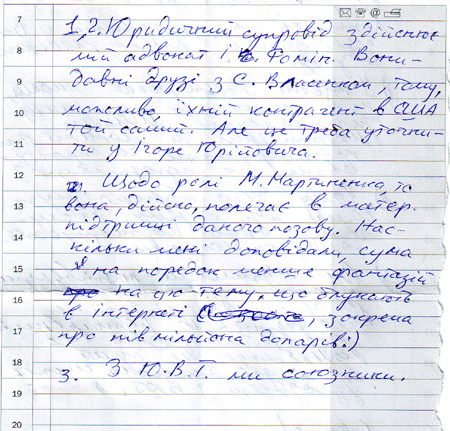 7
1,2. Юридичний супровід здійснює
8
мій адвокат І. Фомін. Вони -
9
давні друзі з С. Власенком, тому,
10
можливо, їхній контрагент в США
той самий. Але це треба уточни-
11
ти у Ігоря Юрійовича.
12
Щодо ролі М. Мартиненка, то
13
вона, дійсно, полягає в матер.
14
підтримці даного позову. Нас-
кільки мені доповідали, сума
15
на порядок менше фантазій
16
на цю тему, що блукають
в інтернеті, зокрема
17
про пів мільйона доларів:)
18
3. З Ю.В.Т. ми союзники.
19
20